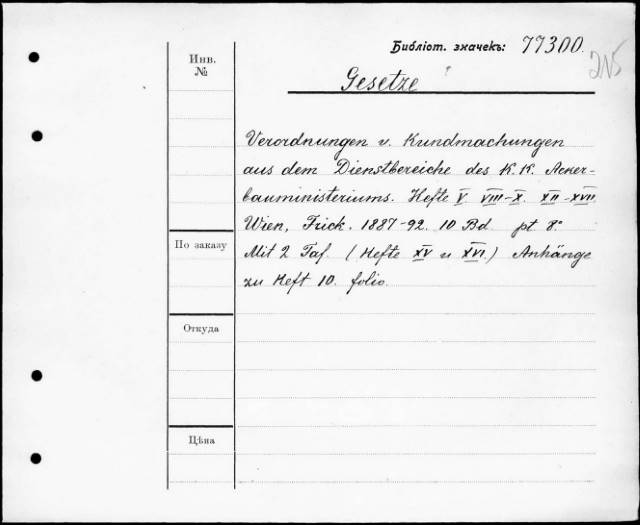 Библіот. значекъ: 77300.
215
Инв.
№
Gesetze
Verordnungen v. Kundmachungen
aus dem Dienstbereiche des K. K. Acker-
bauministeriums. Hefte V. VIII-X. XII-XVII.
Wien, Frick. 1887-92. 10 Bd. pt 8°
Mit 2 Taf. (Hefte XV u XVI.) Anhänge
zu Heft 10. folio.
По заказу
Откуда
Цѣна